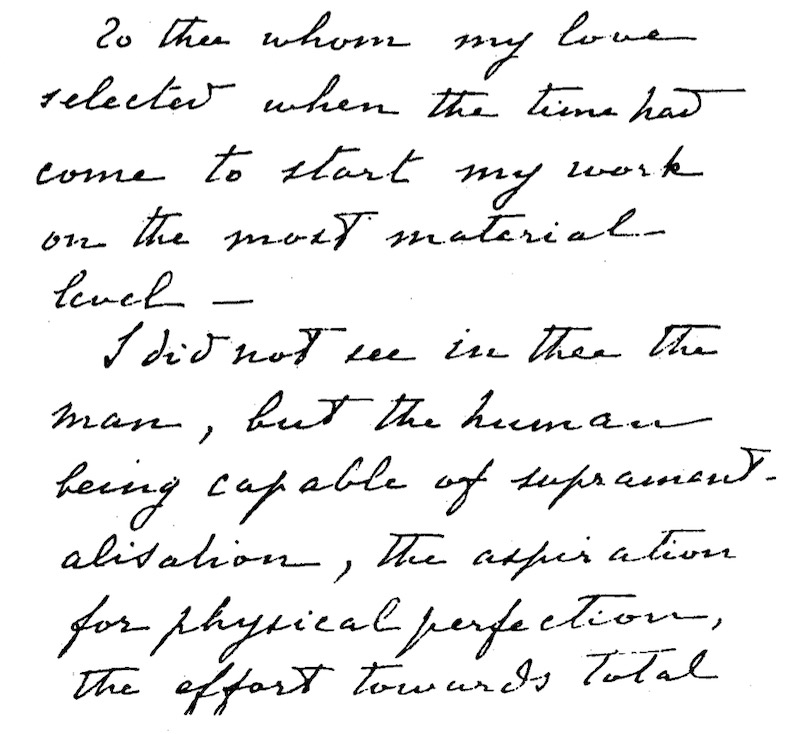 To thee whom my love
selected when the time had
come to start my work
on the most material
level —
I did not see in thee the
man, but the human
being capable of suprament-
alisation, the aspiration
for physical perfection,
the effort towards total